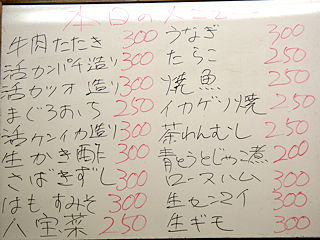 本日の
牛肉たたき 300
活カンパチ造り 300
活カツオ造り 300
まぐろおいち 250
活ケンイカ造り 300
生かき酢 300
さばきずし 300
はもすみそ 300
八宝菜 250
うなぎ 300
たらこ 250
焼魚 250
イカゲソ焼 250
茶わんむし 250
青とうとじゃこ煮 200
ロースハム 300
生センマイ 300
生ギモ 300